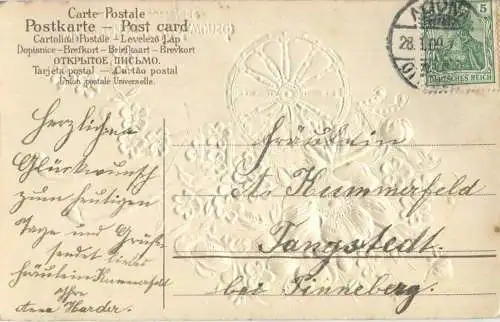 Carte Postale
Postkarte – Post card
Cartolina Postale – Levelező Láp
Dopisnice – Brefkort – Briefkaart – Brevkort
ОТКРЫТОЕ ПИСЬМО.
Tarjeta postal – Cartão postal
Union postale Universelle.
5
28.1.09.7
DEUTSCHES REICH
Herzlichen
Glückwunsch
zum heutigen
Tage und Grüße
sendet
Fräulein Hummerfeld
Ihre
Anna Harder.
Fräulein
A. Hummerfeld
Tangstedt.
bei Pinneberg.